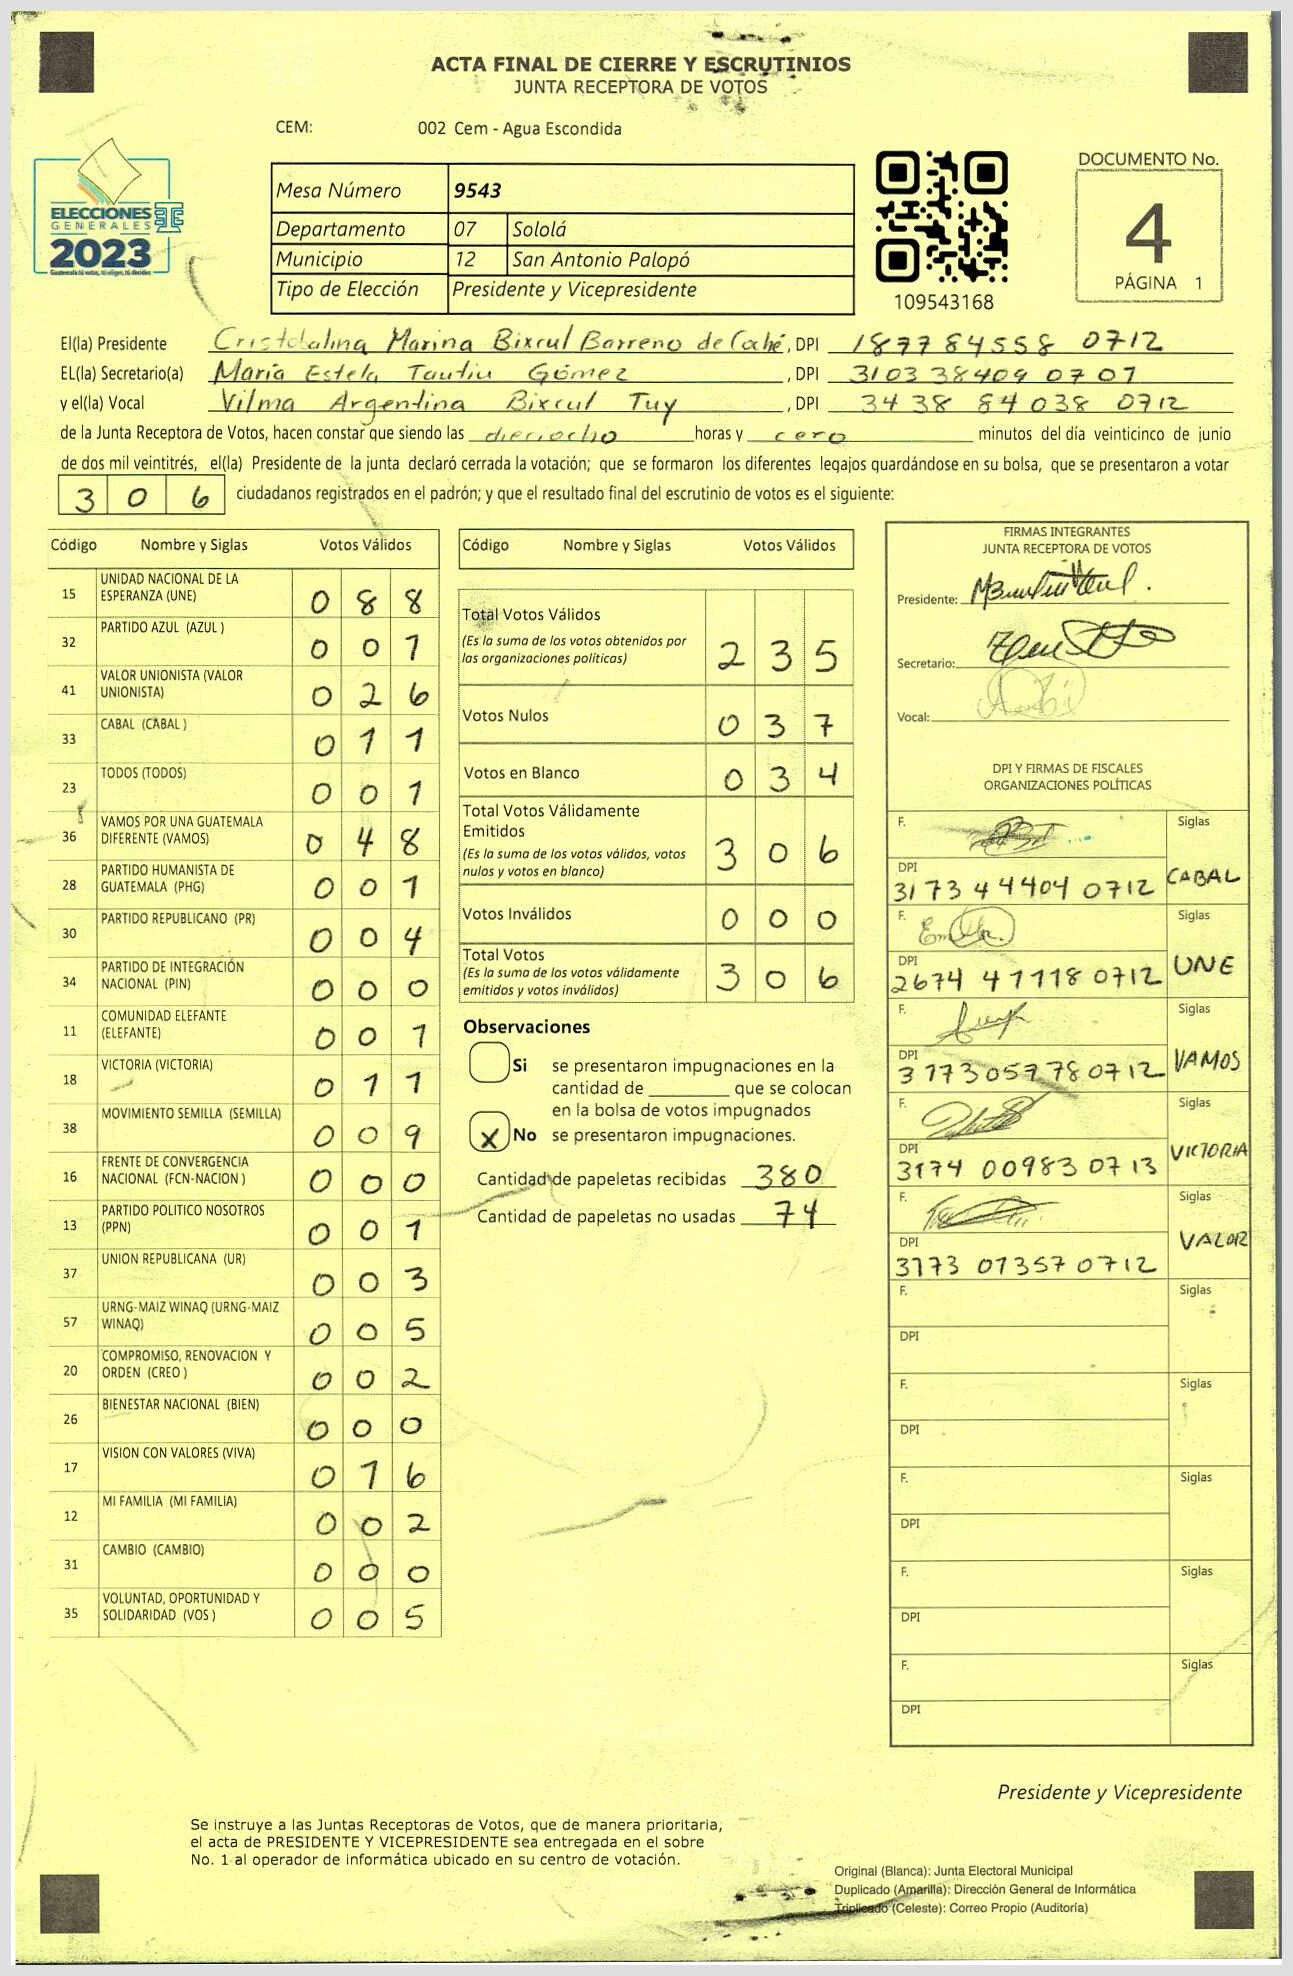 ACTA FINAL DE CIERRE Y ESCRUTINIOS
JUNTA RECEPTORA DE VOTOS
CEM: 002 Cem - Agua Escondida
ELECCIONES
GENERALES
2023
Guatemala tú votas, tú eliges, tú decides
Mesa Número 9543
Departamento 07 Sololá
Municipio 12 San Antonio Palopó
Tipo de Elección Presidente y Vicepresidente
109543168
DOCUMENTO No.
4
PÁGINA 1
El(la) Presidente Cristobalina Marina Bixcul Barreno de Cahé, DPI 187784558 0712
EL(la) Secretario(a) María Estela Tautiu Gómez, DPI 310338409 0707
y el(la) Vocal Vilma Argentina Bixcul Tuy, DPI 3438 84038 0712
de la Junta Receptora de Votos, hacen constar que siendo las dieciocho horas y cero minutos del día veinticinco de junio
de dos mil veintitrés, el(la) Presidente de la junta declaró cerrada la votación; que se formaron los diferentes legajos guardándose en su bolsa, que se presentaron a votar
306 ciudadanos registrados en el padrón; y que el resultado final del escrutinio de votos es el siguiente:
Código Nombre y Siglas Votos Válidos
15 UNIDAD NACIONAL DE LA ESPERANZA (UNE) 088
32 PARTIDO AZUL (AZUL ) 001
41 VALOR UNIONISTA (VALOR UNIONISTA) 026
33 CABAL (CABAL ) 011
23 TODOS (TODOS) 001
36 VAMOS POR UNA GUATEMALA DIFERENTE (VAMOS) 048
28 PARTIDO HUMANISTA DE GUATEMALA (PHG) 001
30 PARTIDO REPUBLICANO (PR) 004
34 PARTIDO DE INTEGRACIÓN NACIONAL (PIN) 000
11 COMUNIDAD ELEFANTE (ELEFANTE) 001
18 VICTORIA (VICTORIA) 011
38 MOVIMIENTO SEMILLA (SEMILLA) 009
16 FRENTE DE CONVERGENCIA NACIONAL (FCN-NACION ) 000
13 PARTIDO POLITICO NOSOTROS (PPN) 001
37 UNION REPUBLICANA (UR) 003
57 URNG-MAIZ WINAQ (URNG-MAIZ WINAQ) 005
20 COMPROMISO, RENOVACION Y ORDEN (CREO ) 002
26 BIENESTAR NACIONAL (BIEN) 000
17 VISION CON VALORES (VIVA) 016
12 MI FAMILIA (MI FAMILIA) 002
31 CAMBIO (CAMBIO) 000
35 VOLUNTAD, OPORTUNIDAD Y SOLIDARIDAD (VOS ) 005
Código Nombre y Siglas Votos Válidos
Total Votos Válidos 235
(Es la suma de los votos obtenidos por
las organizaciones políticas)
Votos Nulos 037
Votos en Blanco 034
Total Votos Válidamente
Emitidos 306
(Es la suma de los votos válidos, votos
nulos y votos en blanco)
Votos Inválidos 000
Total Votos 306
(Es la suma de los votos válidamente
emitidos y votos inválidos)
Observaciones
Si se presentaron impugnaciones en la
cantidad de ________ que se colocan
en la bolsa de votos impugnados
X No se presentaron impugnaciones.
Cantidad de papeletas recibidas 380
Cantidad de papeletas no usadas 74
FIRMAS INTEGRANTES
JUNTA RECEPTORA DE VOTOS
Presidente:
Secretario:
Vocal:
DPI Y FIRMAS DE FISCALES
ORGANIZACIONES POLÍTICAS
F. Siglas
DPI
3173 44404 0712 CABAL
F. Siglas
DPI
2674 47118 0712 UNE
F. Siglas
DPI
3173 05778 0712 VAMOS
F. Siglas
DPI
3174 00983 0713 VICTORIA
F. Siglas
DPI
3173 01357 0712 VALOR
F. Siglas
DPI
F. Siglas
DPI
F. Siglas
DPI
F. Siglas
DPI
F. Siglas
DPI
Presidente y Vicepresidente
Se instruye a las Juntas Receptoras de Votos, que de manera prioritaria,
el acta de PRESIDENTE Y VICEPRESIDENTE sea entregada en el sobre
No. 1 al operador de informática ubicado en su centro de votación.
Original (Blanca): Junta Electoral Municipal
Duplicado (Amarilla): Dirección General de Informática
Triplicado (Celeste): Correo Propio (Auditoría)